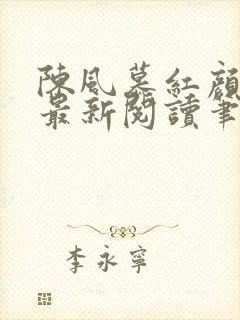 陳風慕紅顏
最新閱讀筆
李永寧